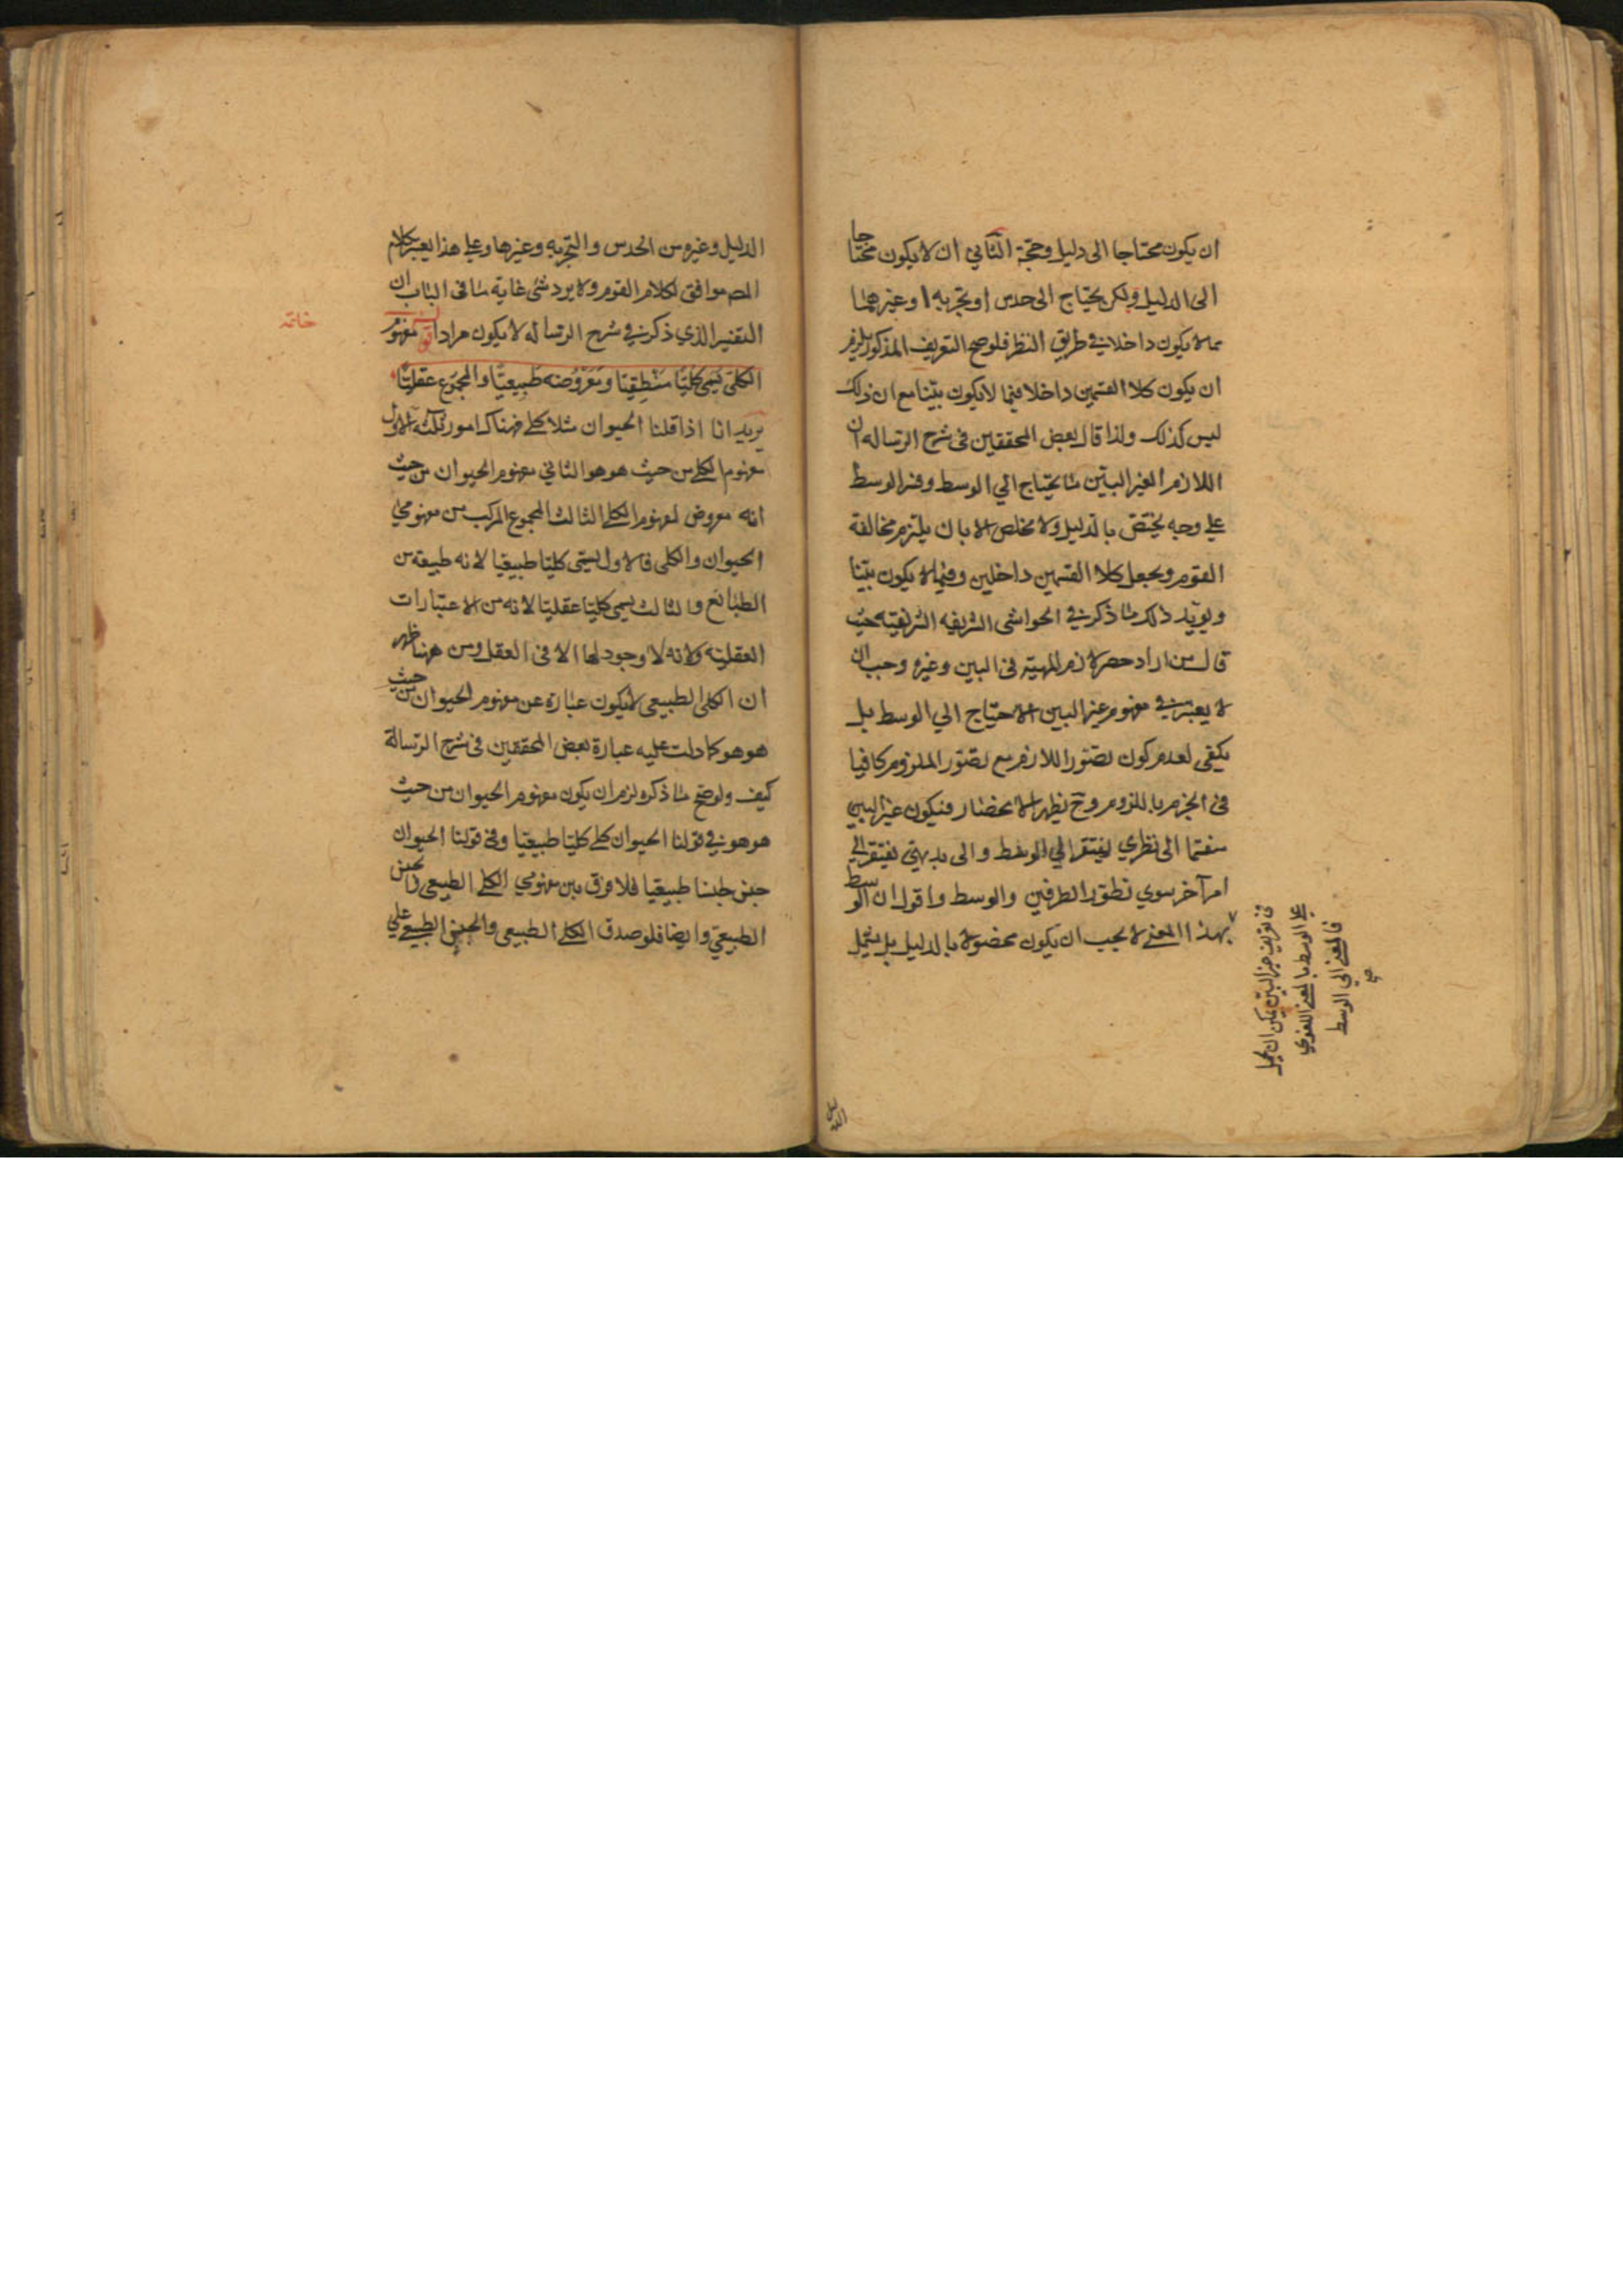 ان يكون محتاجا الى دليل وحجة الثاني ان لا يكون محتاجا
الى الدليل ولكن يحتاج الى حدس او تجربه او غيرهما
مما لا يكون داخلا في طريق النظر فلو صح التعريف المذكور يلزم
ان يكون كلا القسمين داخلا فيما لا يكون بيّنا مع ان ذلك
ليس كذلك ولذا قال بعض المحققين فى شرح الرساله ان
اللازم الغير البيّن ما يحتاج الي الوسط وفسر الوسط
علي وجه يختص بالدليل ولا مخلص الا بان يلتزم مخالفة
القوم ويجعل كلا القسمين داخلين وفيما لا يكون بيّنا
ويويّد ذلك ما ذكر في الحواشى الشريفه الشريفيّه حيث
قال من اراد حصر لازم المهيّة فى البين وغيره وجب ان
لا يعتبر في مفهوم غير البين الاحتياج الي الوسط بل
يكفى لعدم كون تصوّر اللازم مع تصوّر الملزوم كافيا
فى الجزم باللزوم وح يظهر الانحصار فيكون غير البين
منقسما الى نظري يفتقر الي الوسط والى بديهيّ يفتقر الي
امر آخر سوي تطوّر الطرفين والوسط واقول ان الوسط
بهذا المعنى لا يجب ان يكون مخصوصا بالدليل بل يشمل
فى تعريف غير البيّن يمكن ان يحمل
علي الوسط بالمعنى اللغوي
فالمعنى الي الوسط
صح
الدليل وغيره من الحدس والتجربه وغيرها وعلي هذا يصير كلام
المص موافق لكلام القوم ولا يرد شئ غاية ما فى الباب ان
التفسير الذي ذكر في شرح الرساله لا يكون مرادا قوله مفهوم
خاتمه
الكلى يسمى كليّا منطقيّا ومعروضه طبيعيّا والمجموع عقليّا
يريد انا اذا قلنا الحيوان مثلا كلي فهناك امور ثلثه الاول
مفهوم الكلي من حيث هو هو الثاني مفهوم الحيوان من حيث
انه معروض لمفهوم الكلي الثالث المجموع المركب من مفهومي
الحيوان والكلى فالاول يسمّى كليّا طبيعيا لانه طبيعة من
الطبائع والثالث يسمى كليّا عقليّا لانه من الاعتبارات
العقليّه ولانه لا وجود لها الا فى العقل ومن هنا ظهر
ان الكلى الطبيعى لا يكون عبارة عن مفهوم الحيوان من حيث
هو هو كما دلت عليه عبارة بعض المحققين فى شرح الرسالة
كيف ولو صح ما ذكره لزم ان يكون مفهوم الحيوان من حيث
هو هو في قولنا الحيوان كلي كليّا طبيعيّا وفى قولنا الحيوان
جنس جنسا طبيعيّا فلا فرق بين مفهومي الكلي الطبيعى والجنس
الطبيعيّ وايضا فلو صدق الكلي الطبيعى والجنس الطبيعي علي